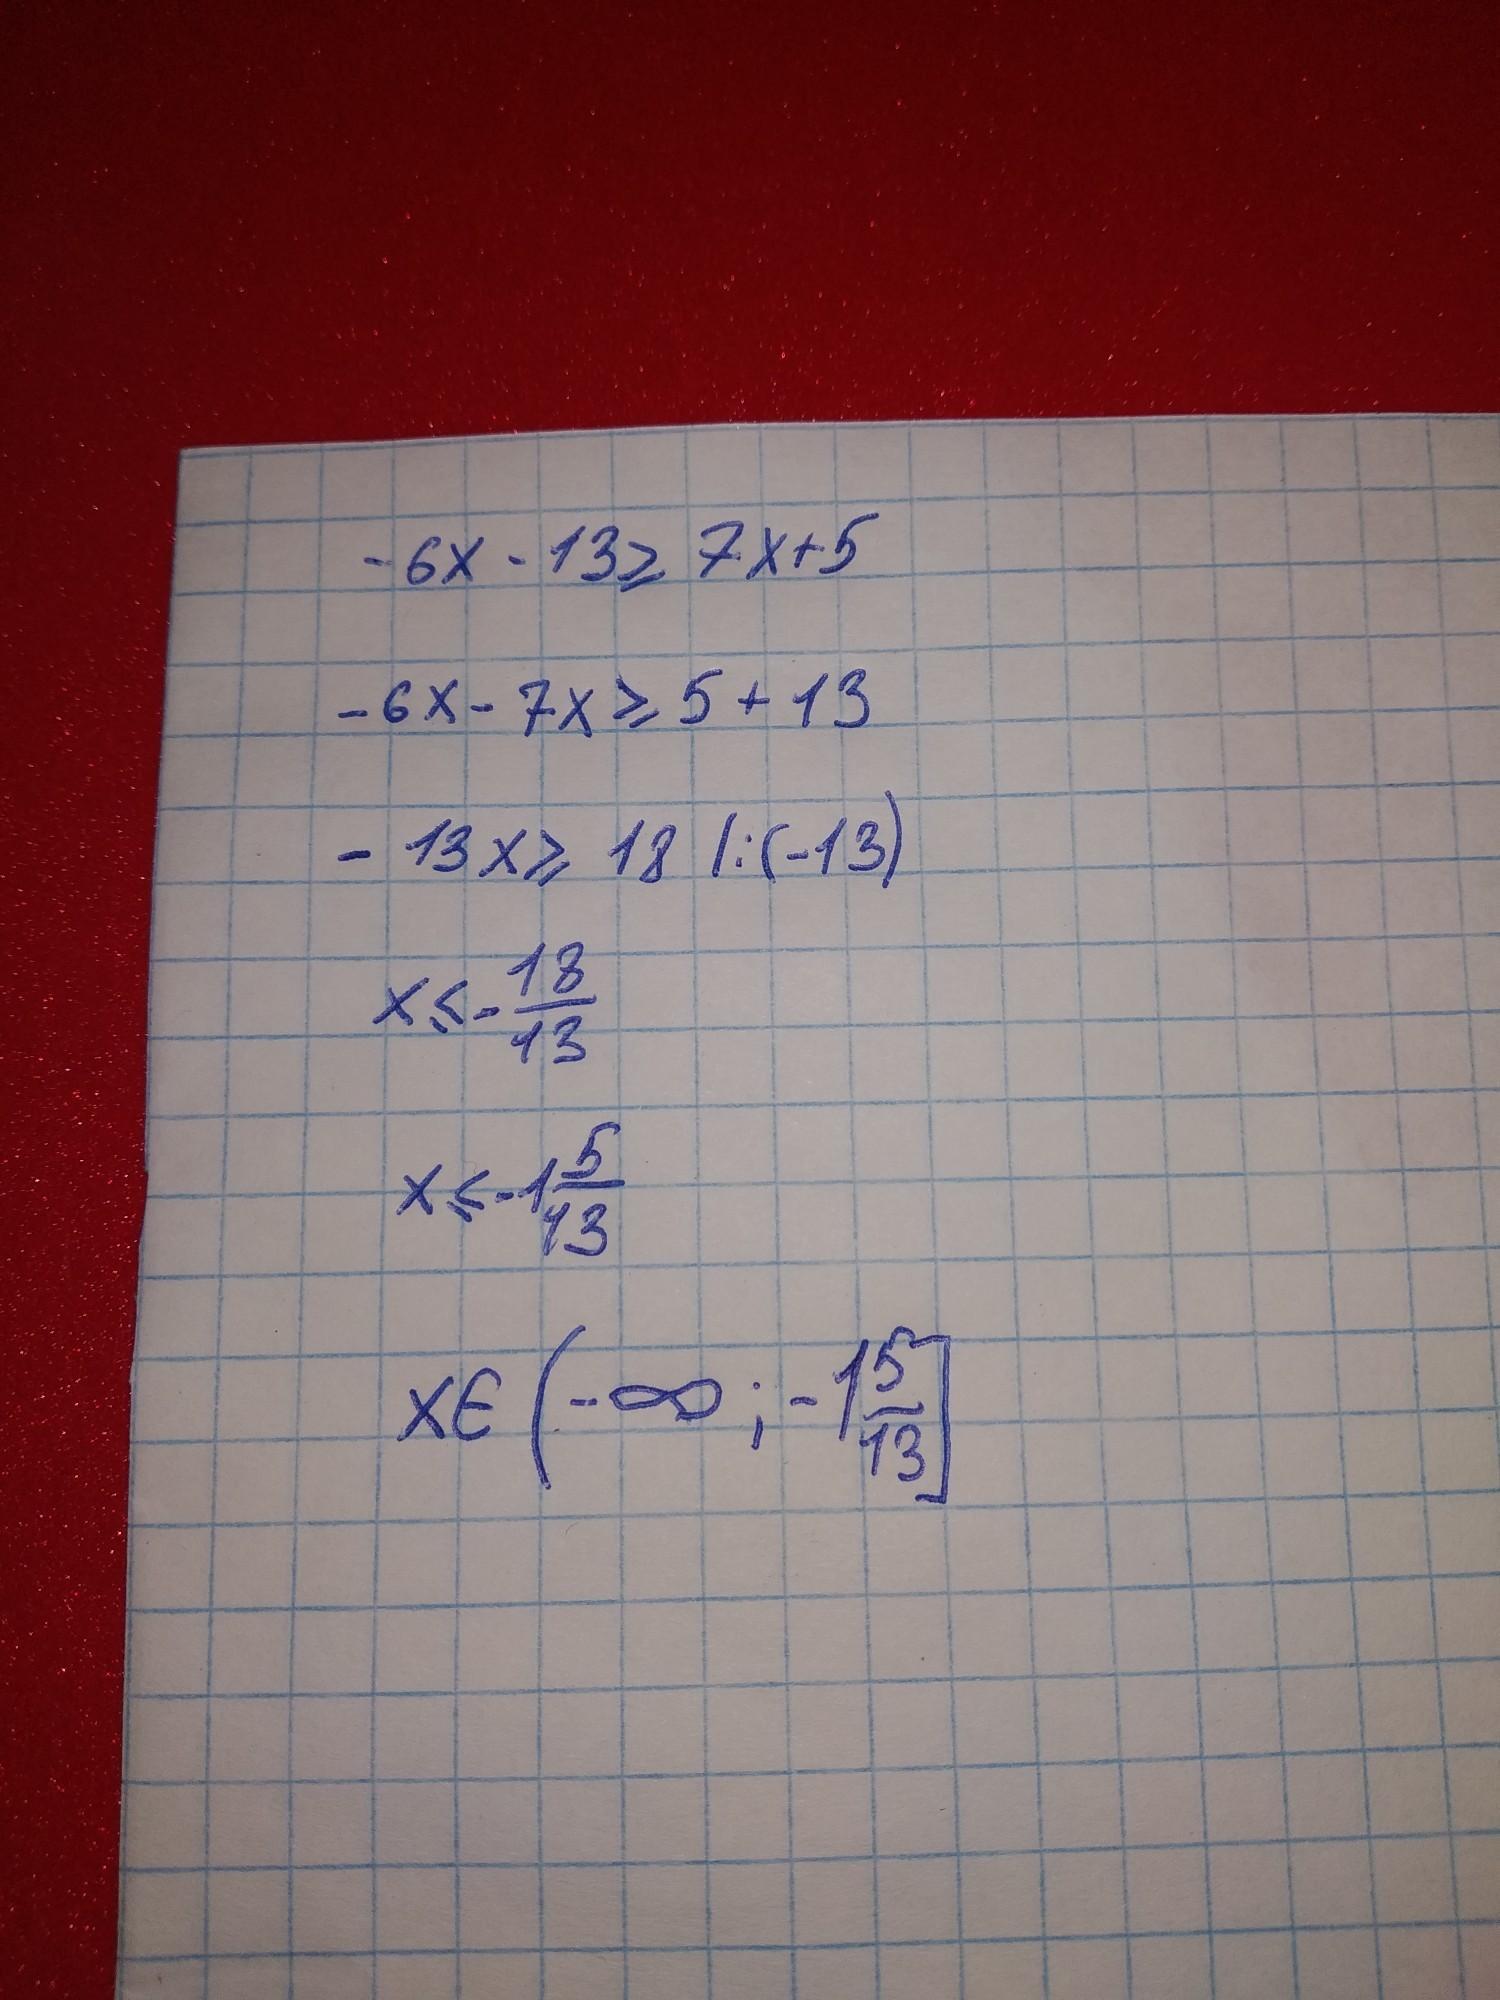 -6x - 13 ⩾ 7x + 5
-6x - 7x ⩾ 5 + 13
- 13x ⩾ 18 |:(-13)
x ⩽ - 18/13
x ⩽ -1 5/13
x ∈ (-∞; -1 5/13]